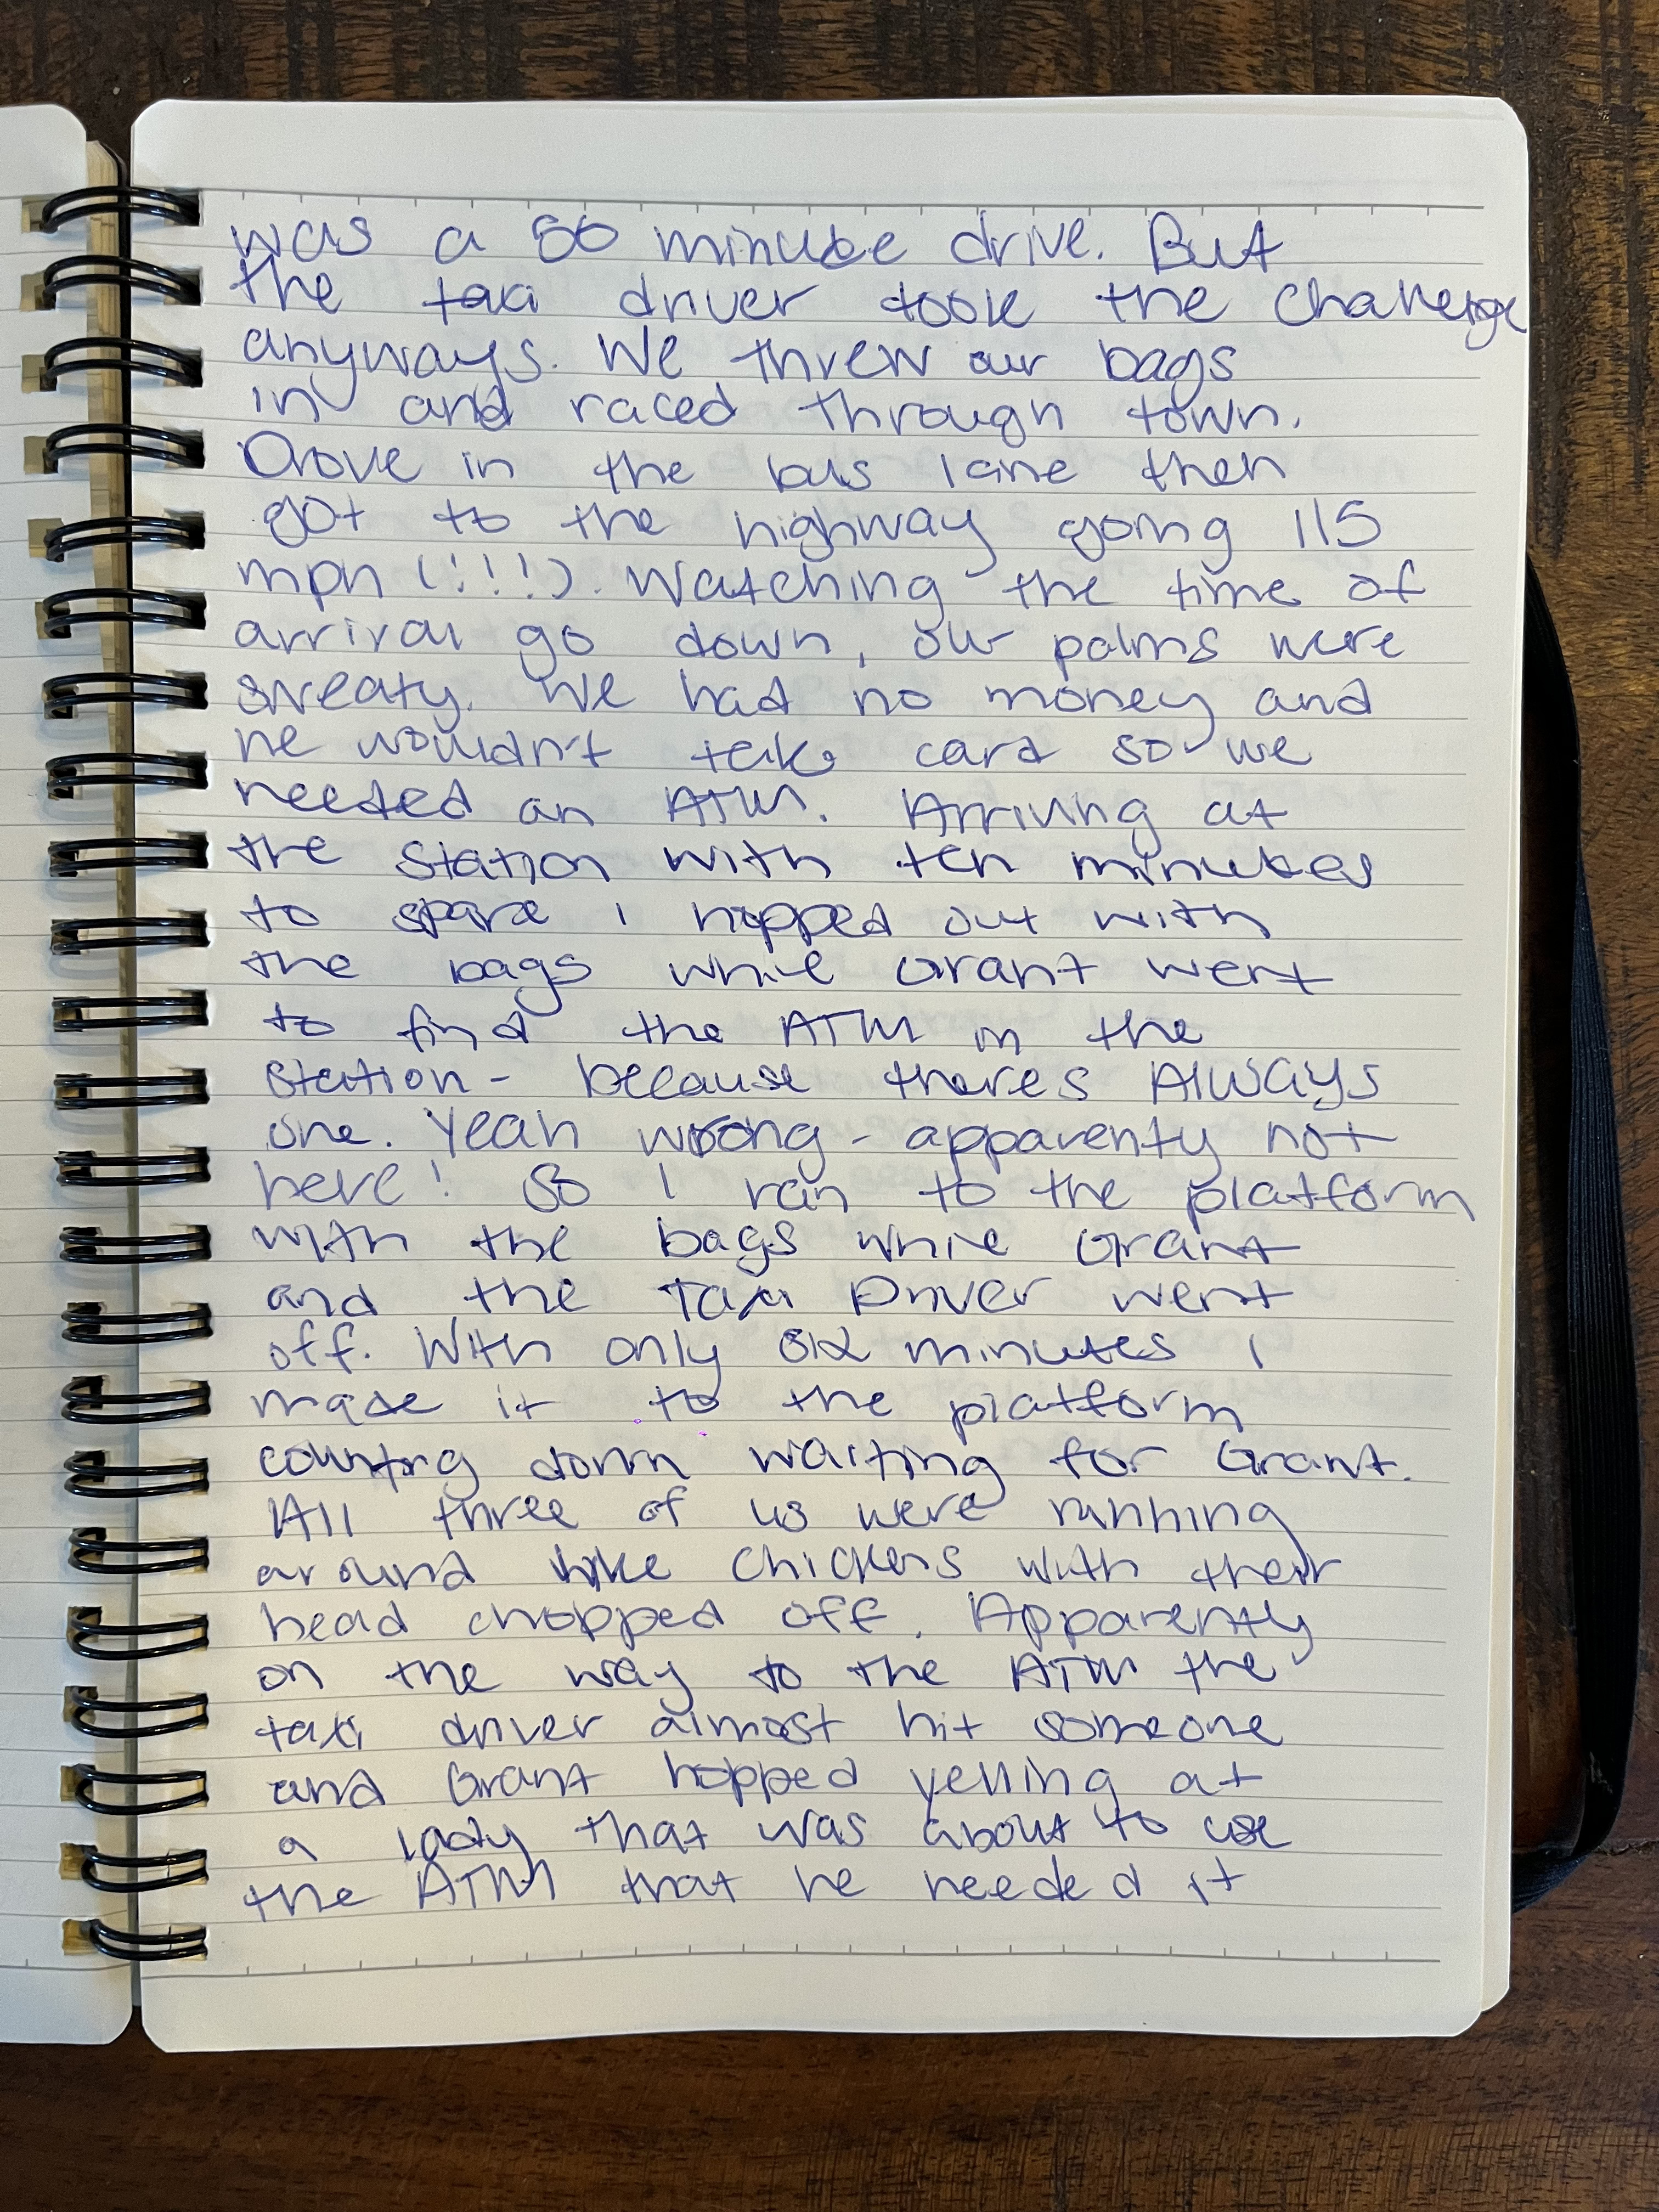 was a 50 minute drive. But
the taxi driver took the challenge
anyways. We threw our bags
in and raced through town.
Drove in the bus lane then
got to the highway going 115
mph (!!!!). Watching the time of
arrival go down, our palms were
sweaty. We had no money and
he wouldn't take card so we
needed an ATM. Arriving at
the station with ten minutes
to spare I hopped out with
the bags while Grant went
to find the ATM in the
station - because theres Always
one. Yeah wrong - apparenty not
here! So I ran to the platform
with the bags while Grant
and the Taxi Driver went
off. With only six minutes I
made it to the platform
counting down waiting for Grant.
All three of us were running
around like chickens with their
head chopped off. Apparenty
on the way to the ATM the
taxi driver almost hit someone
and Grant hopped yelling at
a lady that was about to use
the ATM that he needed it